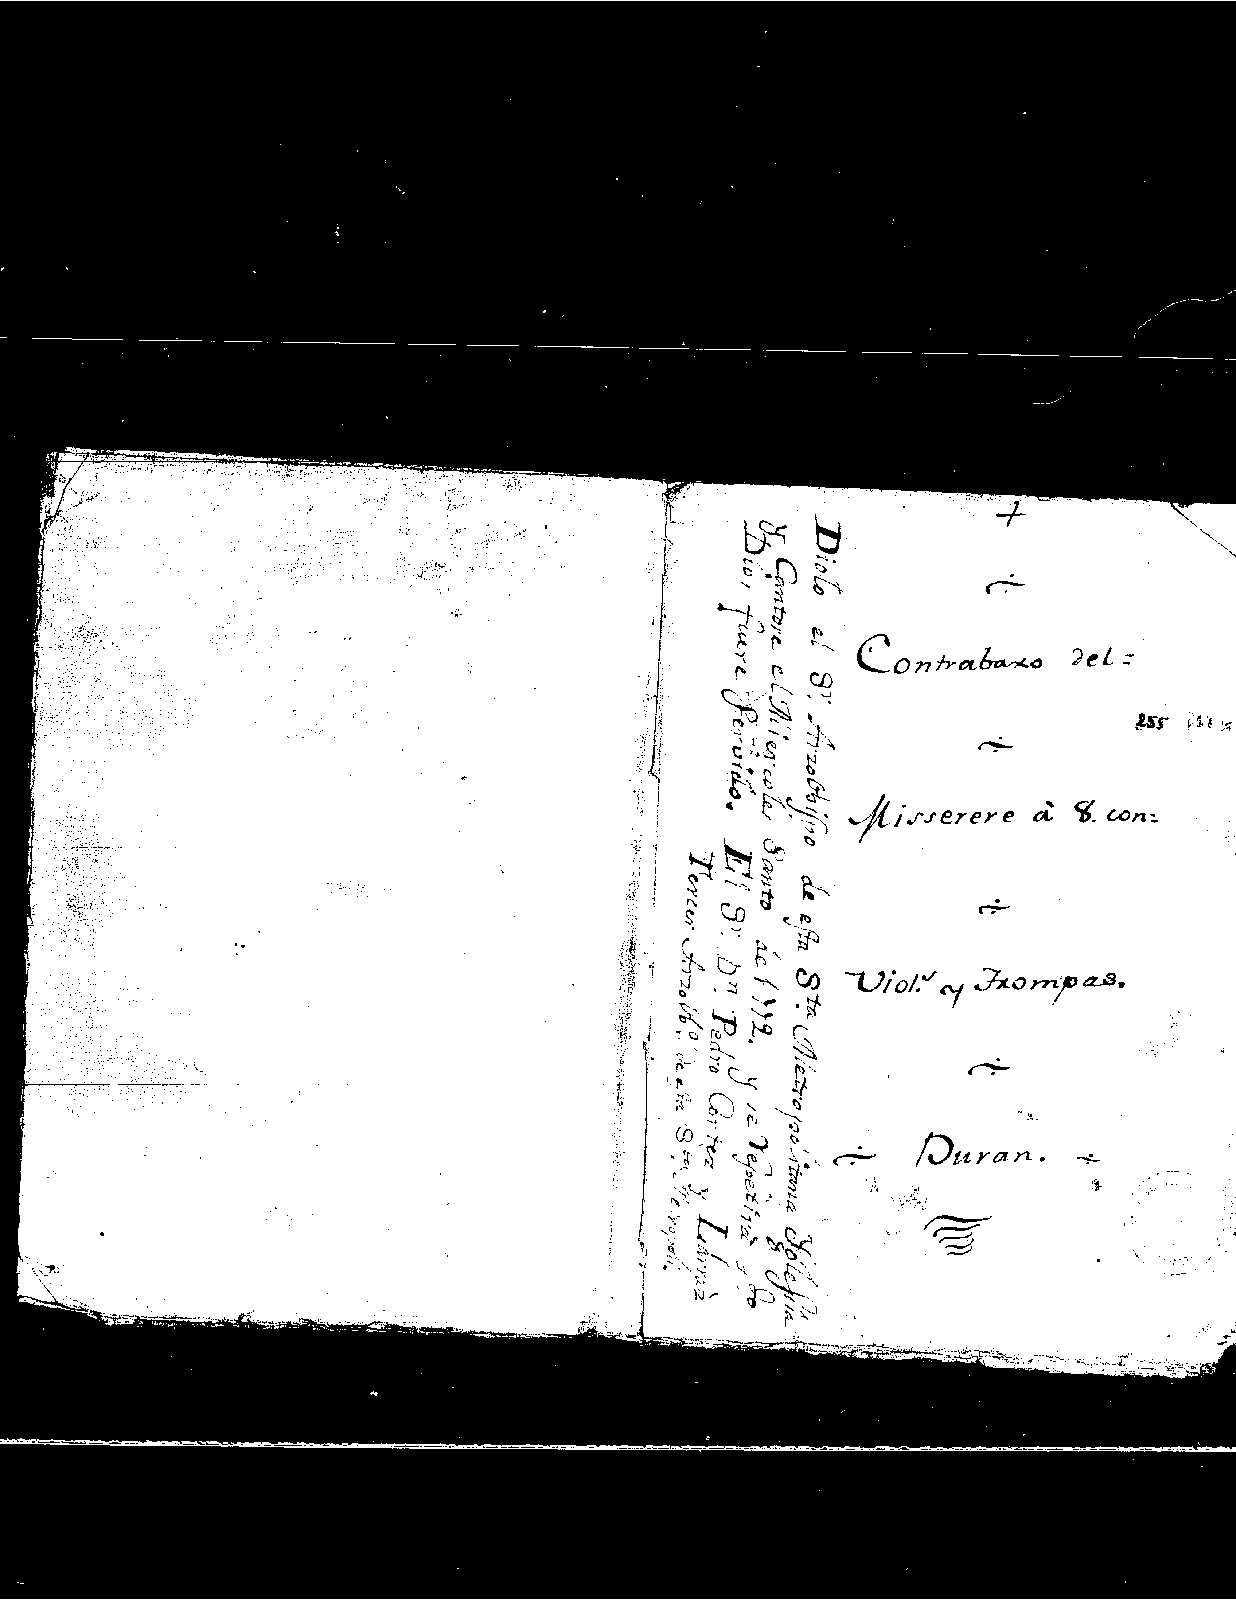 Contrabaxo del=
255
Misserere â 8. con=
Viol.s y Trompas.
Duran.
Diolo el Sr. Arzobispo de esta Sta. Metropolitana Yglesia
Y Cantose el Miercoles Santo de 1772. y se Repetirà si
Dios fuere servido. El Sr. Dn. Pedro Cortes y Larraz
Tercer Arzobpo. de esta Sta.